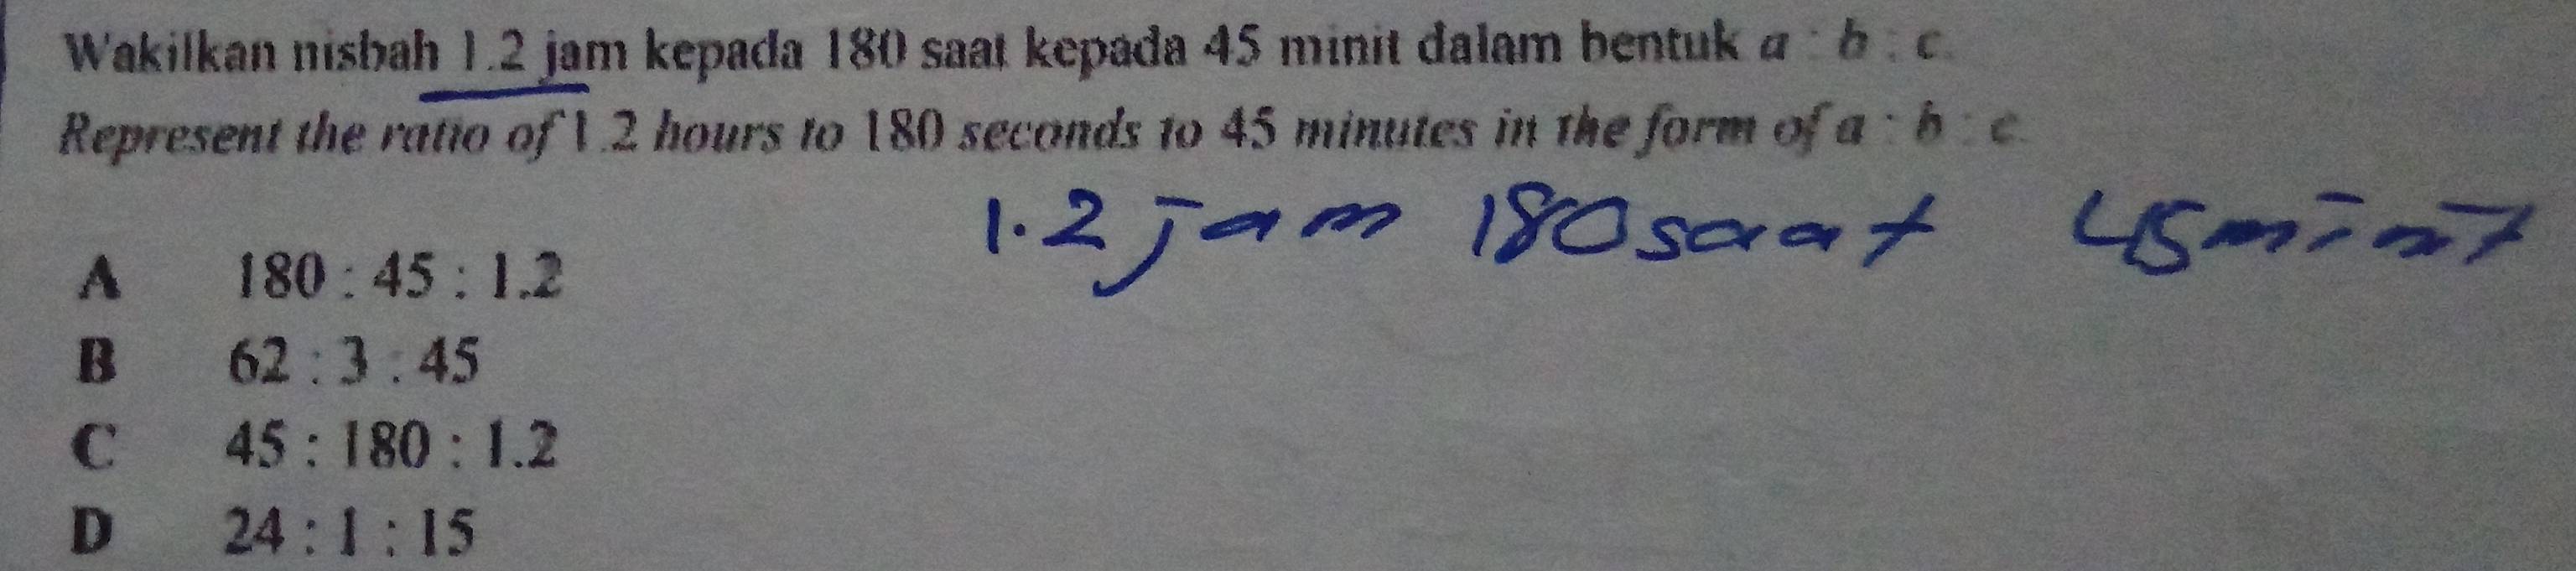 Wakilkan nisbah 1.2 jam kepada 180 saat kepada 45 minit dalam bentuk a : b : c.
Represent the ratio of 1.2 hours to 180 seconds to 45 minutes in the form of a : b : c.
1.2 jam 180 saat 45 minit
A 180 : 45 : 1.2
B 62 : 3 : 45
C 45 : 180 : 1.2
D 24 : 1 : 15